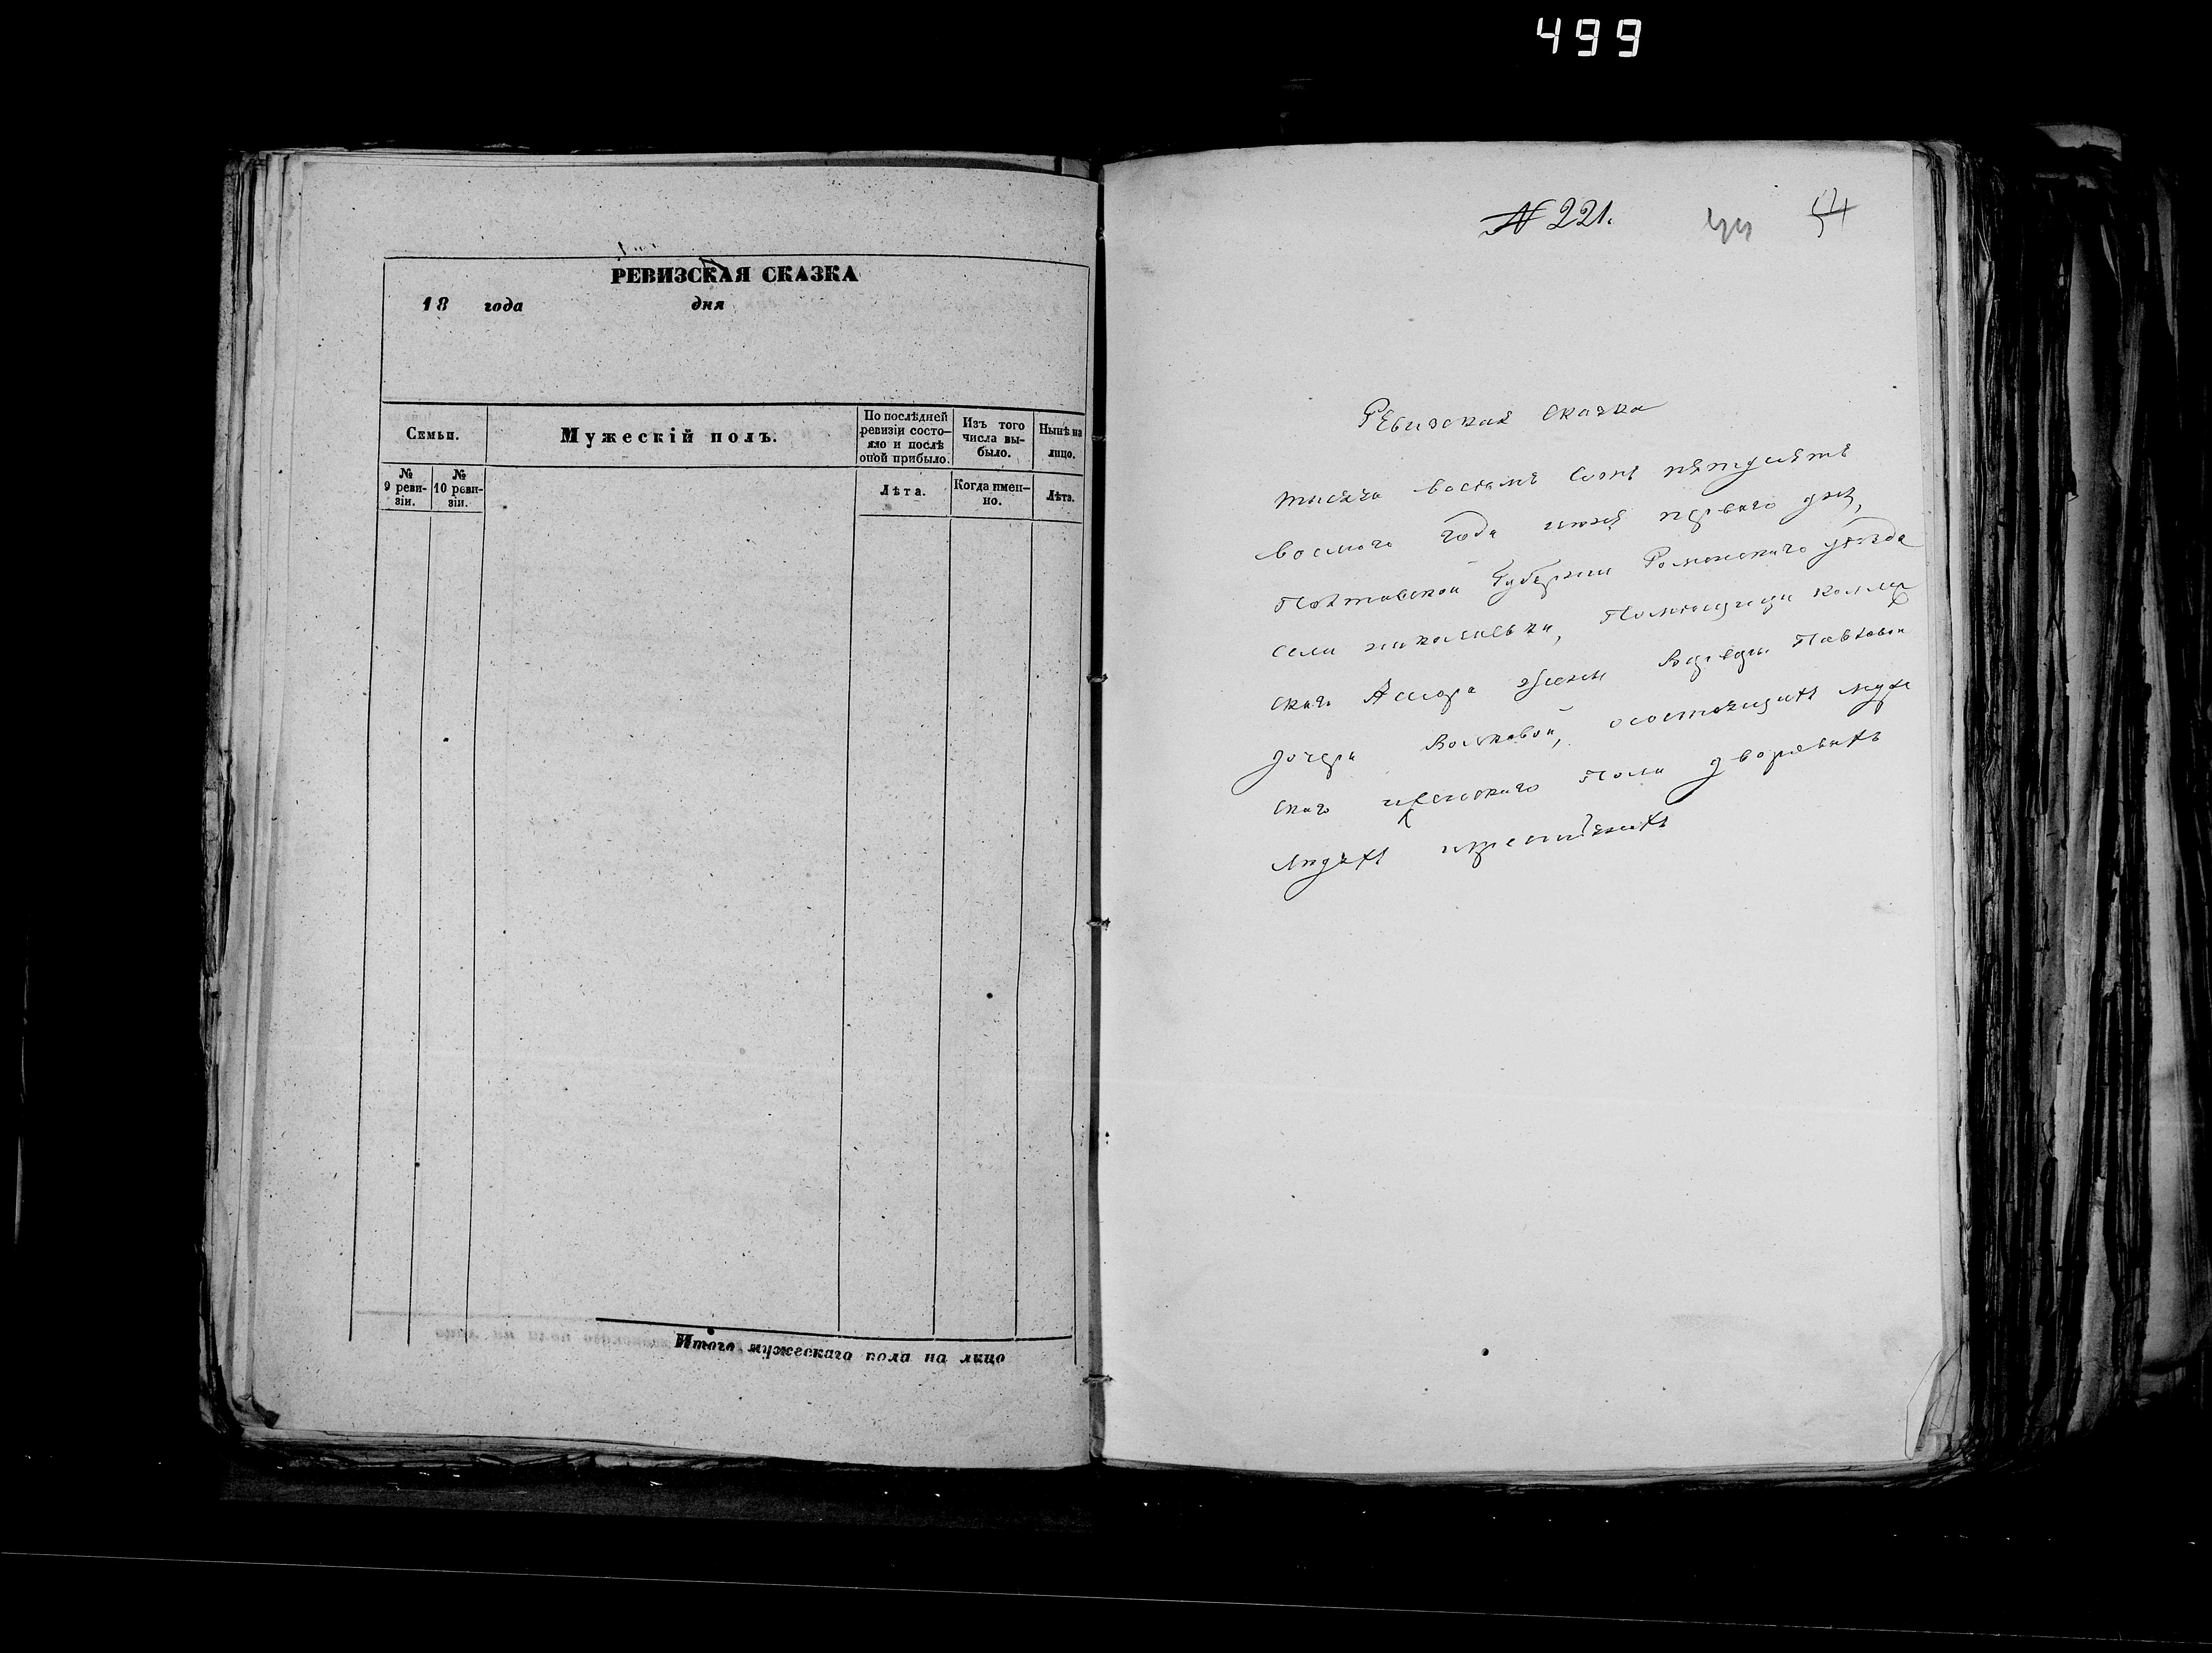 499
РЕВИЗСКАЯ СКАЗКА
18 года дня
Семьи.
Мужескій полъ.
По послѣдней ревизіи состо-
яло и послѣ оной прибыло.
Изъ того числа вы-
было.
Нынѣ на лицо.
№ 9 реви-
зіи.
№ 10 реви-
зіи.
Лѣта.
Когда имен-
но.
Лѣта.
Итого мужескаго пола на лицо
№ 221.
54
Ревизская сказка
тысяча восемь сотъ пятдесятъ
восмого года июня первого дня,
Полтавской Губернии Роменскаго уѣзда
села николаевки, Помѣщици коллеж
скаго Ассора жены Варвары Павловой
дочери Волковой, осостоящихъ муже
скаго иженскаго Пола дворовыхъ
людяхъ икрестьянахъ